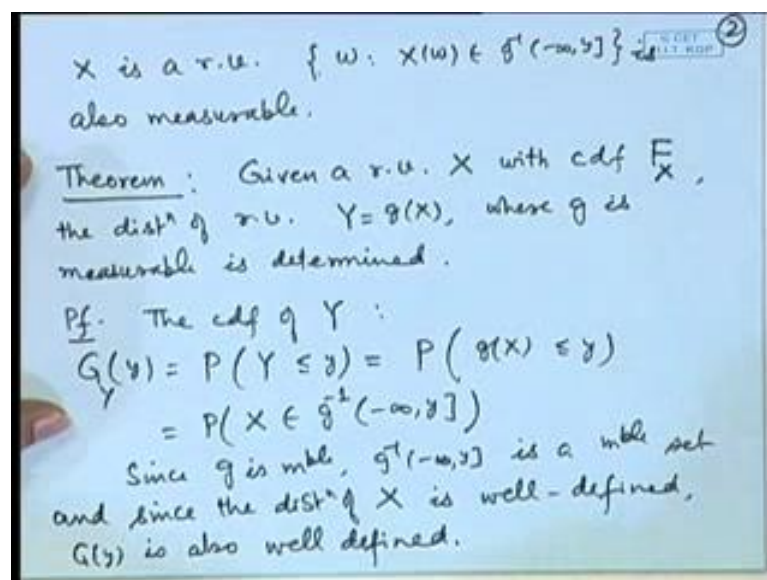 ②
© CET
I.I.T. KGP
X is a r.u. { ω : X(ω) ∈ g⁻¹(-∞, y] } is
also measurable.
Theorem : Given a r.u. X with cdf F_X ,
the distⁿ of r.u. Y = g(X), where g is
measurable is determined.
Pf. The cdf of Y :
G_Y(y) = P(Y ≤ y) = P( g(X) ≤ y)
= P( X ∈ g⁻¹(-∞, y])
Since g is mble, g⁻¹(-∞, y] is a mble set
and since the distⁿ of X is well-defined,
G(y) is also well defined.